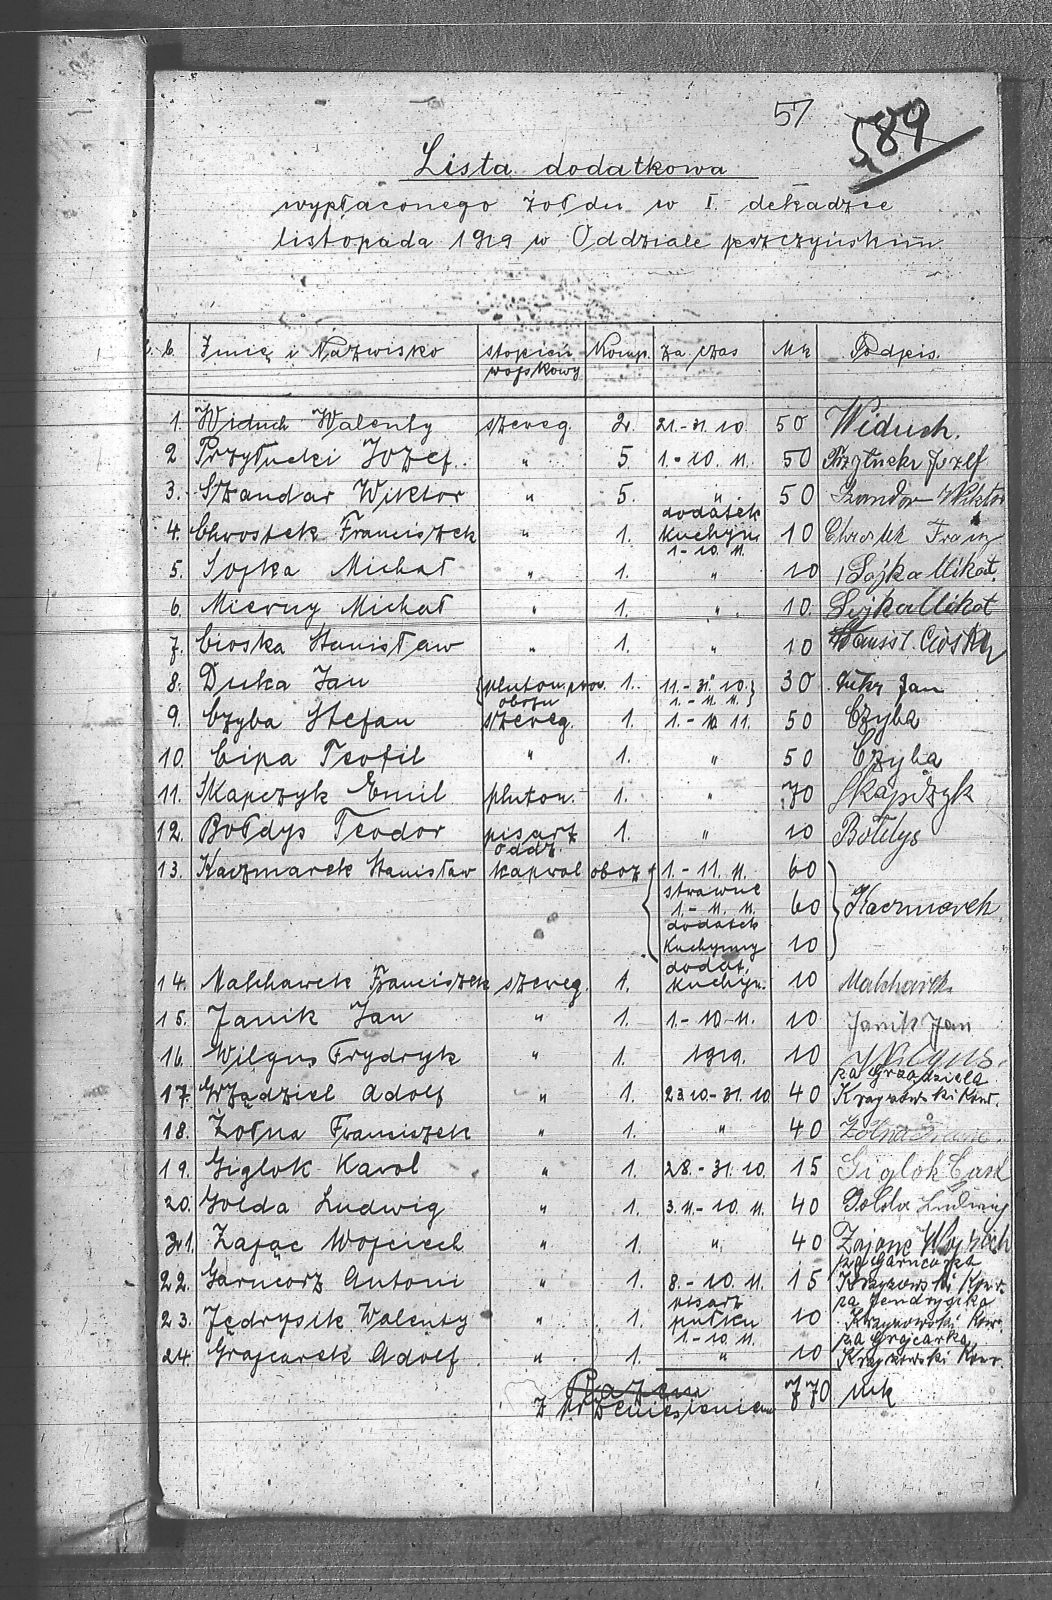 57
589
Lista dodatkowa
wypłaconego żołdu w I. dekadzie
listopada 1919 w Oddziale pszczyńskim.
L. b. Imię i Nazwisko stopień wojskowy Komp. za czas Mk Podpis.
1. Widuch Walenty szereg. 2. 21.-31.10. 50 Widuch.
2 Przyłucki Józef. " 5. 1.-10.11. 50 Przyłucki Józef
3. Szandar Wiktor " 5. " 50 Szandar Wiktor
4. Chrostek Franciszek " 1. dodatek kuchyn. 1-10.11. 10 Chrostek Franz
5. Sojka Michał " 1. " 10 Sojka Mikoł.
6. Mierny Michał " 1. " 10. Sojka Mikoł
7. Cioska Stanisław " 1. " 10 Cioska
8. Duka Jan pluton. prow. obozu 1. 11.-31.10. 1.-11.11. 30 Duka Jan
9. Czyba Stefan szereg. 1. 1.-10.11. 50 Czyba
10. Cipa Teofil " 1. " 50 Czyba
11. Skapczyk Emil pluton. 1. " 70 Skapczyk
12. Bołdys Teodor pisarz oddz. 1. " 10 Bołdys
13. Kaczmarek Stanisław kapral oboz 1.-11.11. 60 Kaczmarek
strawne 1.-11.11. 60
dodatek kuchynny 10
14. Malcharek Franciszek szereg. 1. dodat. kuchyn. 10 Malcharek.
15. Janik Jan " 1. 1.-10.11. 10 Janik Jan
16. Wilgus Frydryk " 1. 1919. 10 Wilgus.
17. Grządziel Adolf " 1. 23.10.-31.10 40 za Grządziela Krzyżowski Konr.
18. Żołna Franciszek " 1. " 40 Żołna Franc.
19. Giglok Karol " 1. 28.-31.10. 15 Giglok Carl
20. Golda Ludwig " 1. 3.11.-10.11. 40 Golda Ludwig
21. Zając Wojciech " 1. " 40 Zajonc Wojciech
22. Garncorz Antoni " 1. 8.-10.11. 15 za Garncorza Krzyżowski Konr.
23. Jędrysik Walenty " 1. pisarz pułku 1-10.11. 10 za Jendrysika Krzyżowski Konr.
24. Grajcarek Adolf " 1. " 10 za Grajcarka Krzyżowski Konr.
Razem
Z przeniesieniem 770 Mk